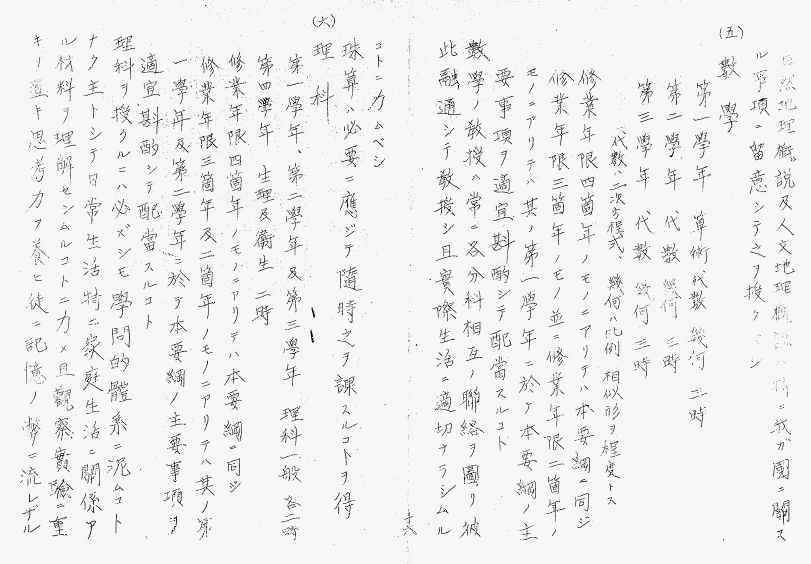 自然地理概説及人文地理概説ハ特ニ我ガ國ニ關ス
ル事項ニ留意シテ之ヲ授クベシ
(五)
數學
第一學年 算術、代數 幾何 三時
第二學年 代數 幾何 三時
第三學年 代數 幾何 三時
代數ハ二次方程式、幾何ハ比例 相似形ヲ程度トス
修業年限四箇年ノモノニアリテハ本要綱ニ同ジ
修業年限三箇年ノモノ並ニ修業年限二箇年ノ
モノニアリテハ其ノ第一學年ニ於テ本要綱ノ主
要事項ヲ適宜斟酌シテ配當スルコト
數學ノ敎授ハ常ニ各分科相互ノ聯絡ヲ圖リ彼
此融通シテ敎授シ且實際生活ニ適切ナラシムル
十六
コトニ力ムベシ
珠算ハ必要ニ應ジテ隨時之ヲ課スルコトヲ得
(六)
理科
第一學年、第二學年及第三學年 理科一般 各二時
第四學年 生理及衞生 二時
修業年限四箇年ノモノニアリテハ本要綱ニ同ジ
修業年限三箇年及二箇年ノモノニアリテハ其ノ第
一學年及第二學年ニ於テ本要綱ノ主要事項ヲ
適宜斟酌シテ配當スルコト
理科ヲ授クルニハ必ズシモ學問的體系ニ泥ムコト
ナク主トシテ日常生活特ニ家庭生活ニ關係ア
ル材料ヲ理解センムルコトニ力メ且觀察實驗ニ重
キヲ置キ思考力ヲ養ヒ徒ニ記憶ノ弊ニ流レザル